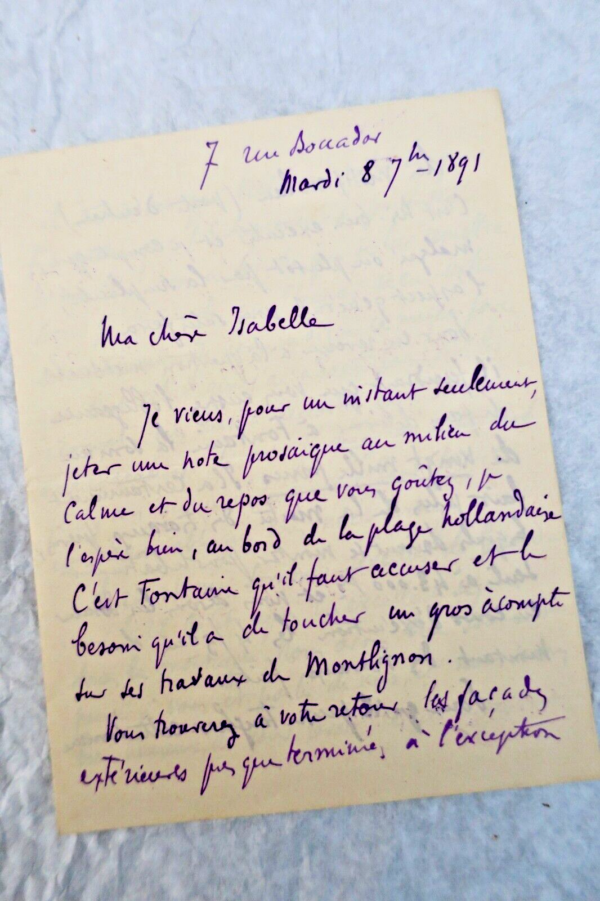 7 rue Boccador
Mardi 8 7bre 1891
Ma chère Isabelle
Je viens, pour un instant seulement,
jeter une note prosaique au milieu du
calme et du repos que vous goûtez, je
l'espère bien, au bord de la plage hollandaise
C'est Fontaine qu'il faut accuser et le
besoin qu'il a de toucher un gros àcompte
sur ses travaux de Montlignon.
Vous trouverez à votre retour les façades
extérieures presque terminées à l'exception